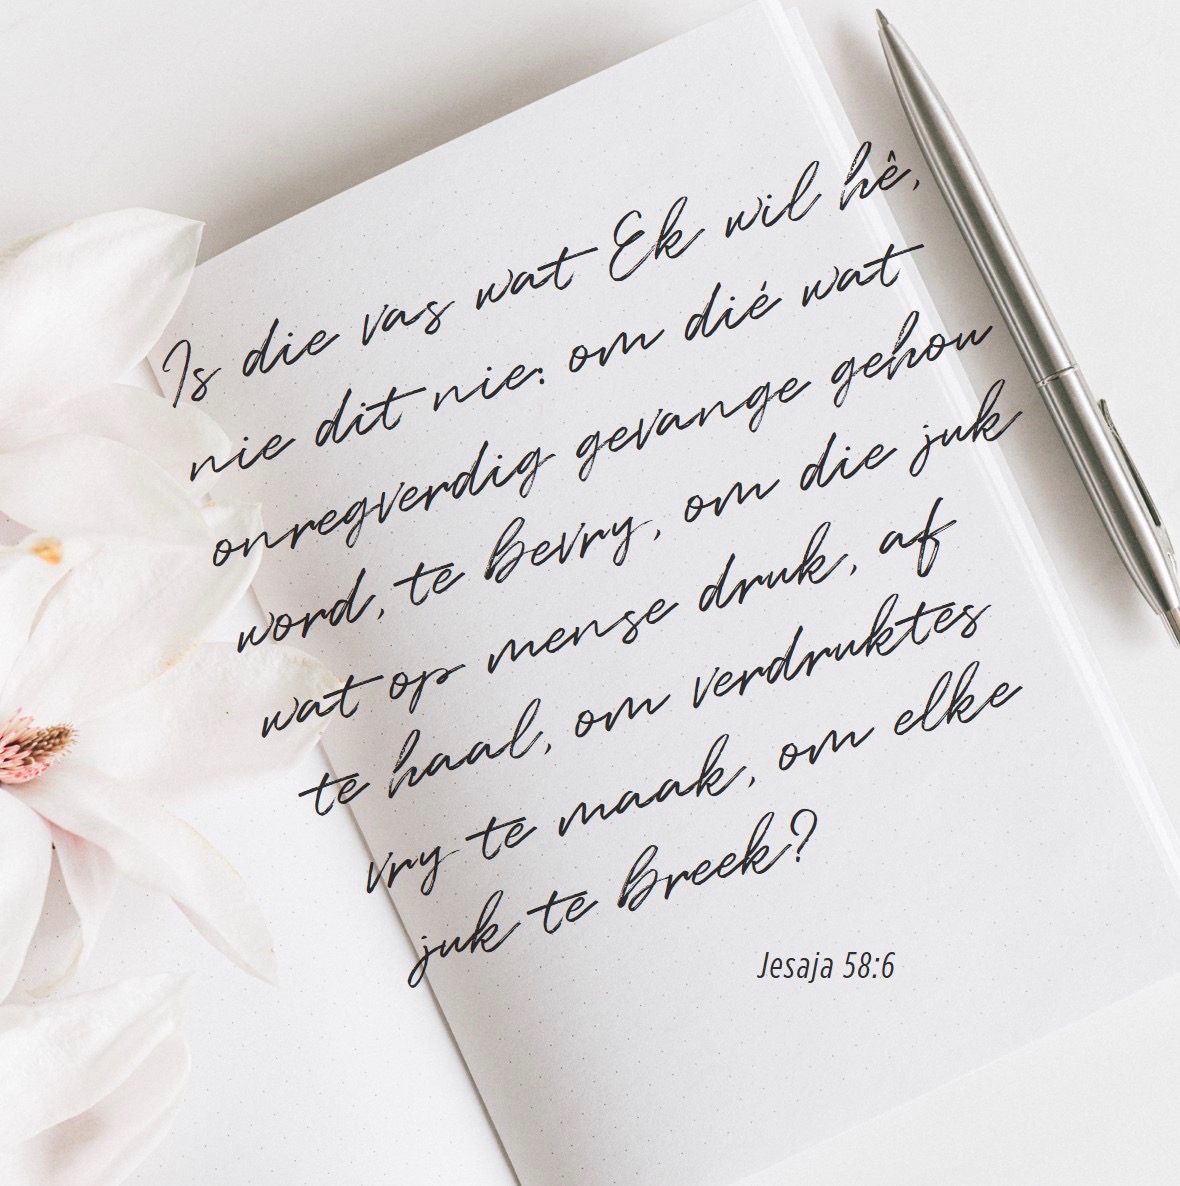 Is die vas wat Ek wil hê,
nie dit nie: om dié wat
onregverdig gevange gehou
word, te bevry, om die juk
wat op mense druk, af
te haal, om verdruktes
vry te maak, om elke
juk te breek?
Jesaja 58:6